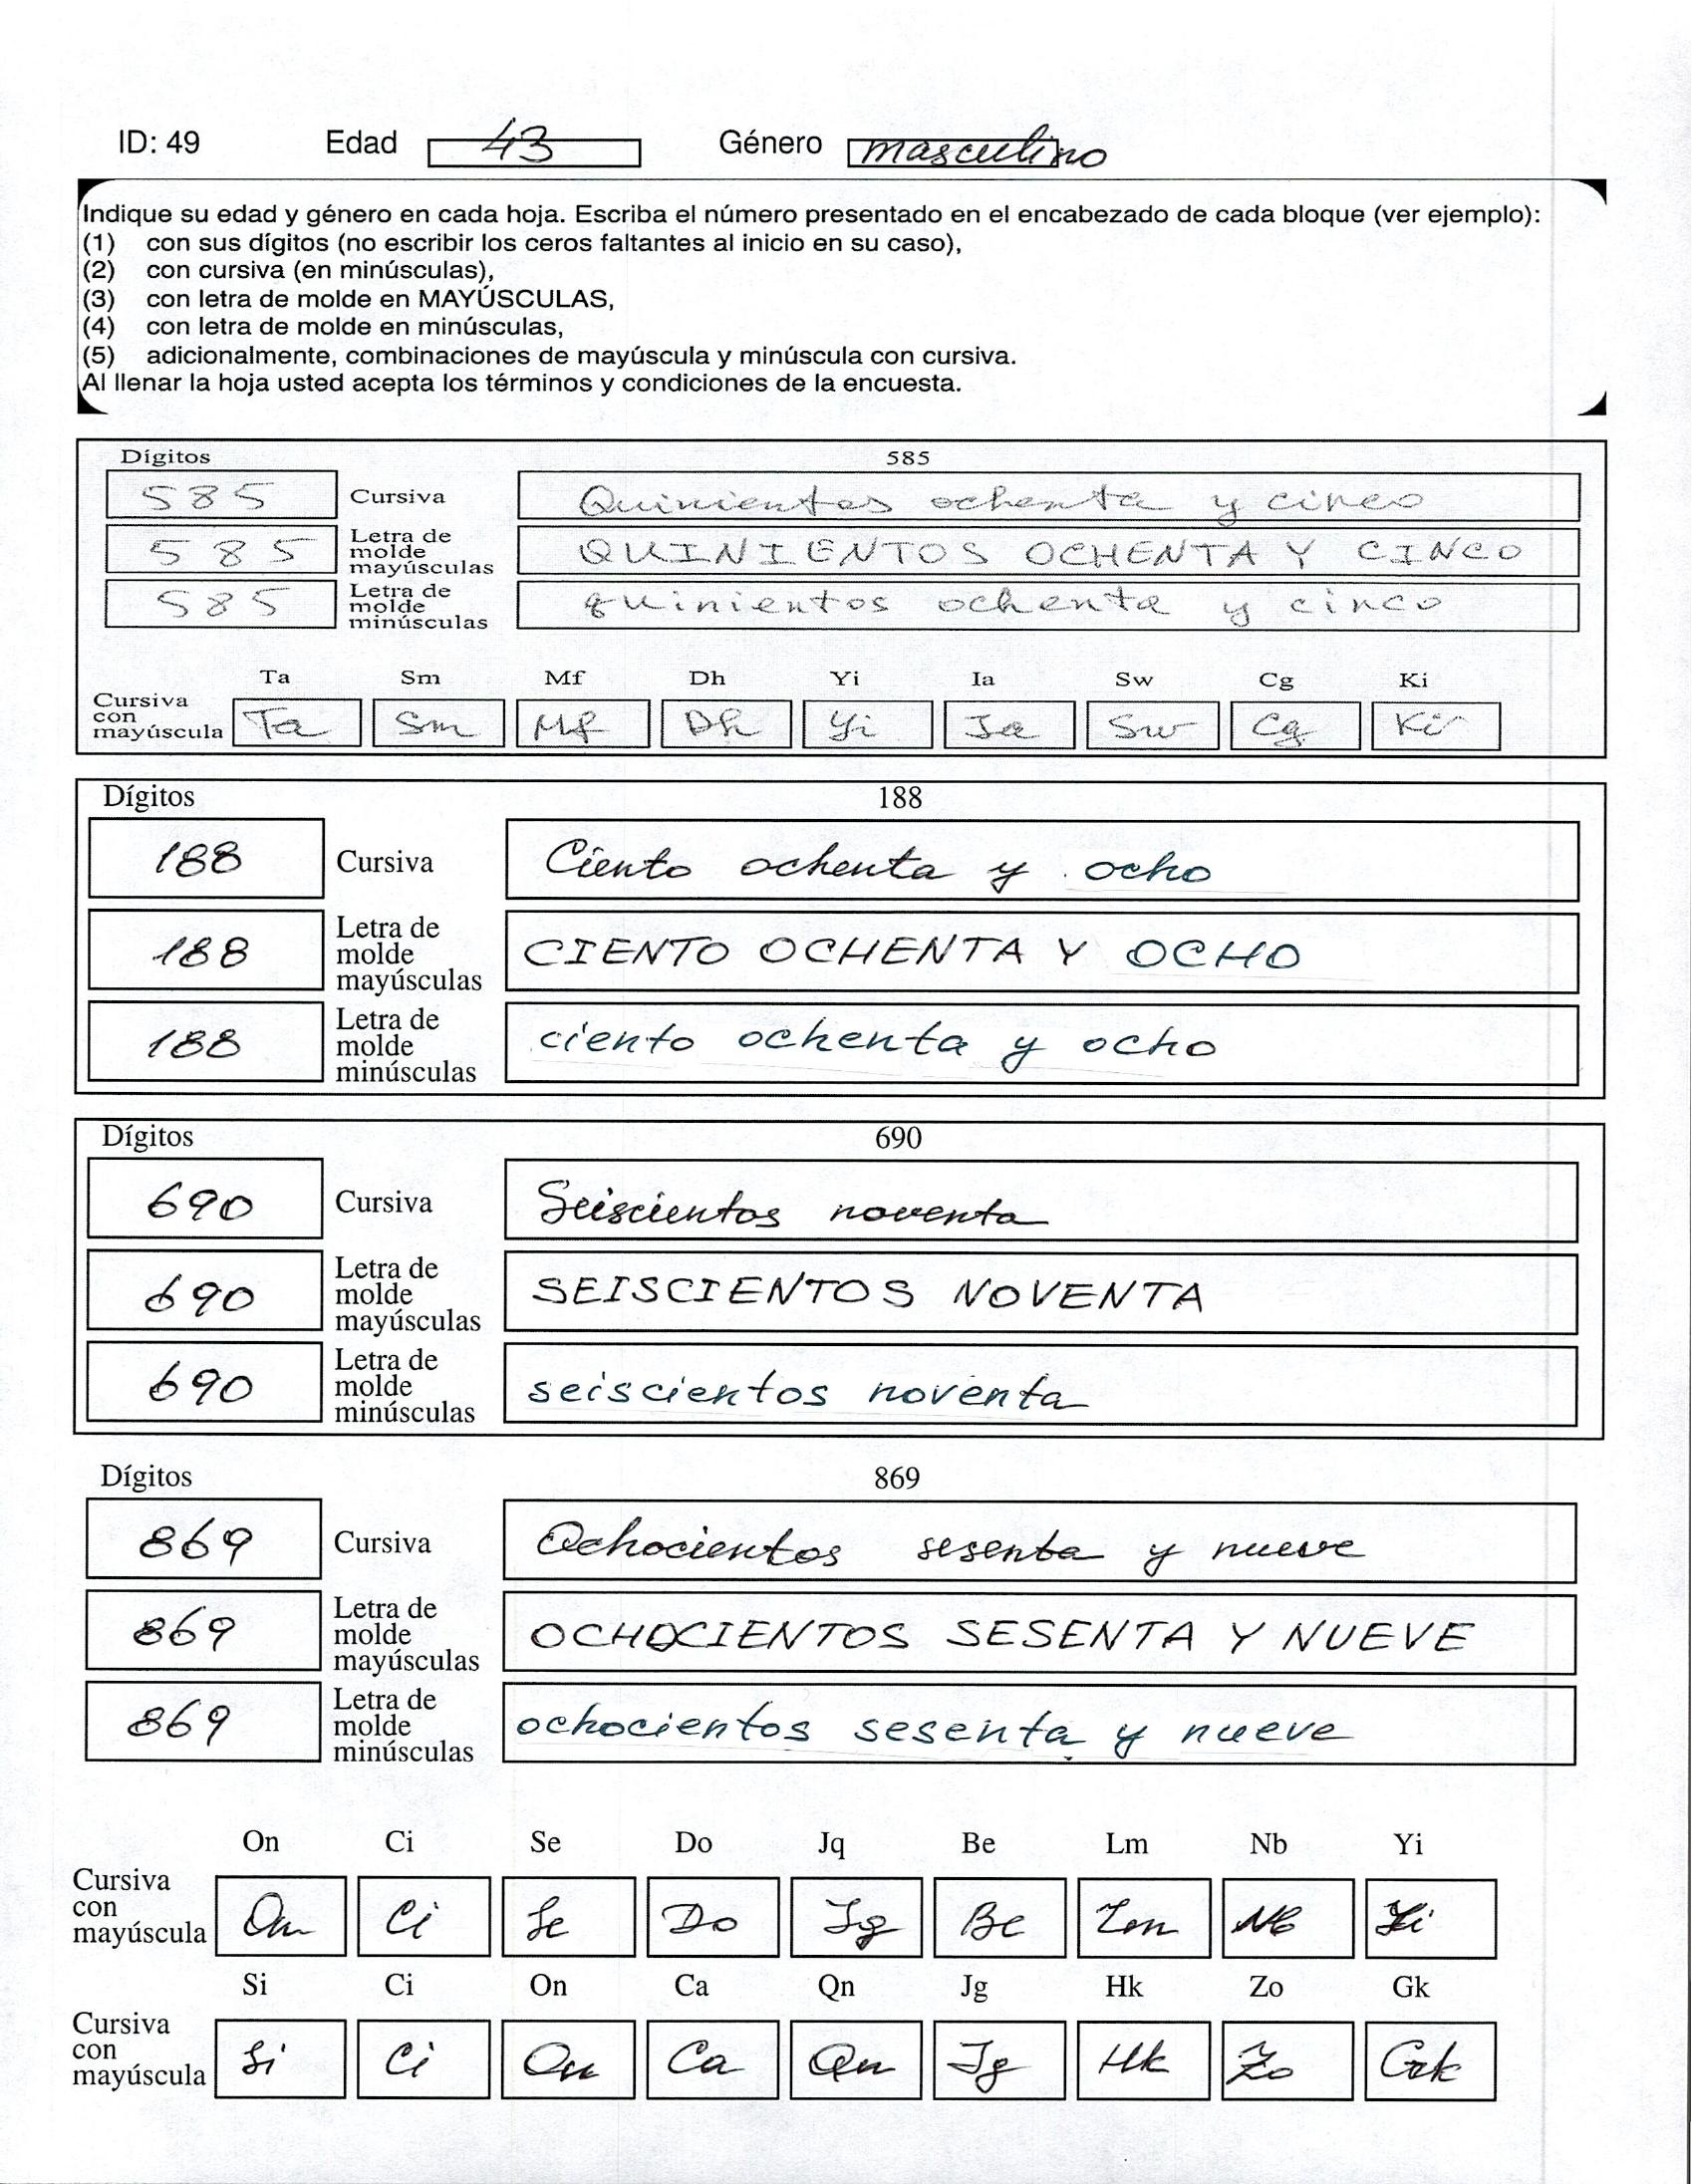 ID: 49 Edad 43 Género masculino
Indique su edad y género en cada hoja. Escriba el número presentado en el encabezado de cada bloque (ver ejemplo):
(1) con sus dígitos (no escribir los ceros faltantes al inicio en su caso),
(2) con cursiva (en minúsculas),
(3) con letra de molde en MAYÚSCULAS,
(4) con letra de molde en minúsculas,
(5) adicionalmente, combinaciones de mayúscula y minúscula con cursiva.
Al llenar la hoja usted acepta los términos y condiciones de la encuesta.
Dígitos 585
585 Cursiva Quinientos ochenta y cinco
585 Letra de molde mayúsculas QUINIENTOS OCHENTA Y CINCO
585 Letra de molde minúsculas quinientos ochenta y cinco
Ta Sm Mf Dh Yi Ia Sw Cg Ki
Cursiva con mayúscula Ta Sm Mf Dh Yi Ia Sw Cg Ki
Dígitos 188
188 Cursiva Ciento ochenta y ocho
188 Letra de molde mayúsculas CIENTO OCHENTA Y OCHO
188 Letra de molde minúsculas ciento ochenta y ocho
Dígitos 690
690 Cursiva Seiscientos noventa
690 Letra de molde mayúsculas SEISCIENTOS NOVENTA
690 Letra de molde minúsculas seiscientos noventa
Dígitos 869
869 Cursiva Ochocientos sesenta y nueve
869 Letra de molde mayúsculas OCHOCIENTOS SESENTA Y NUEVE
869 Letra de molde minúsculas ochocientos sesenta y nueve
On Ci Se Do Jq Be Lm Nb Yi
Cursiva con mayúscula On Ci Se Do Jq Be Lm Nb Yi
Si Ci On Ca Qn Jg Hk Zo Gk
Cursiva con mayúscula Si Ci On Ca Qn Jg Hk Zo Gk